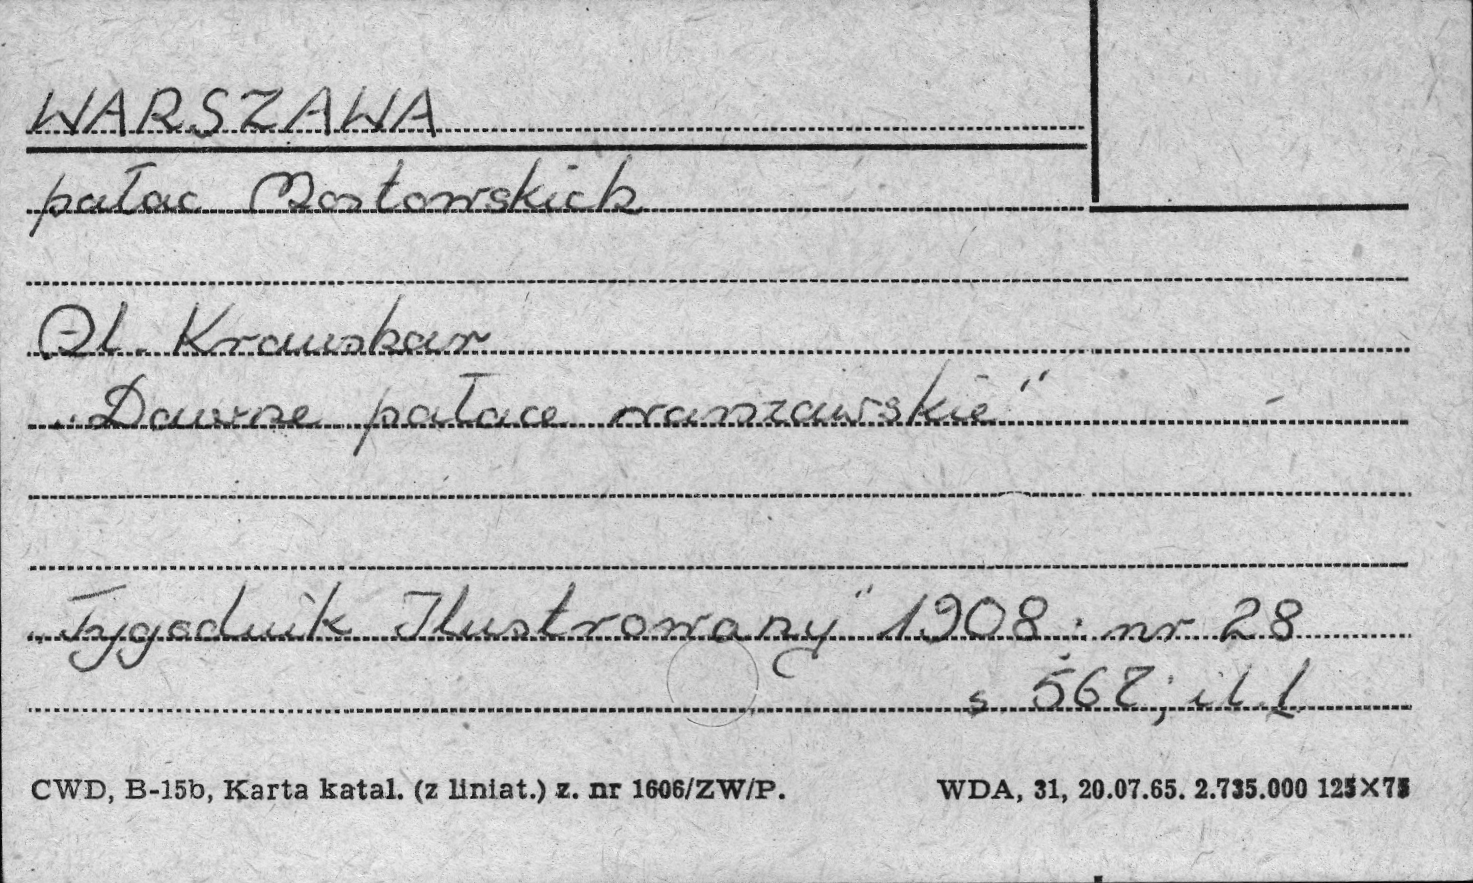 WARSZAWA
pałac Mostowskich
Al. Kraushar
„Dawne pałace warszawskie"
„Tygodnik Ilustrowany" 1908 : nr 28
s. 562; il. 1.
CWD, B-15b, Karta katal. (z liniat.) z. nr 1606/ZW/P.
WDA, 31, 20.07.65. 2.735.000 125×75